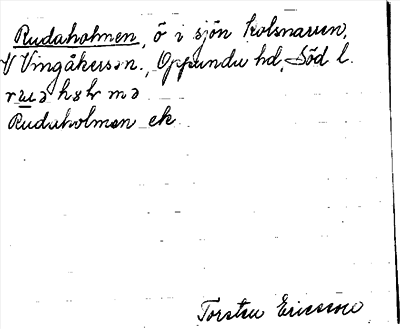 Rudaholmen, ö i sjön Kolsnaren,
V Vingåkers sn., Oppunda hd, Söd l.
Rudaholmen ek
Torsten Ericsson